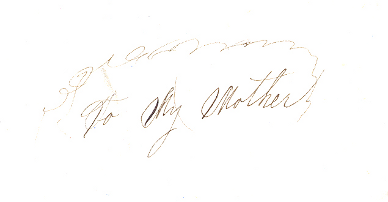 To My Mother